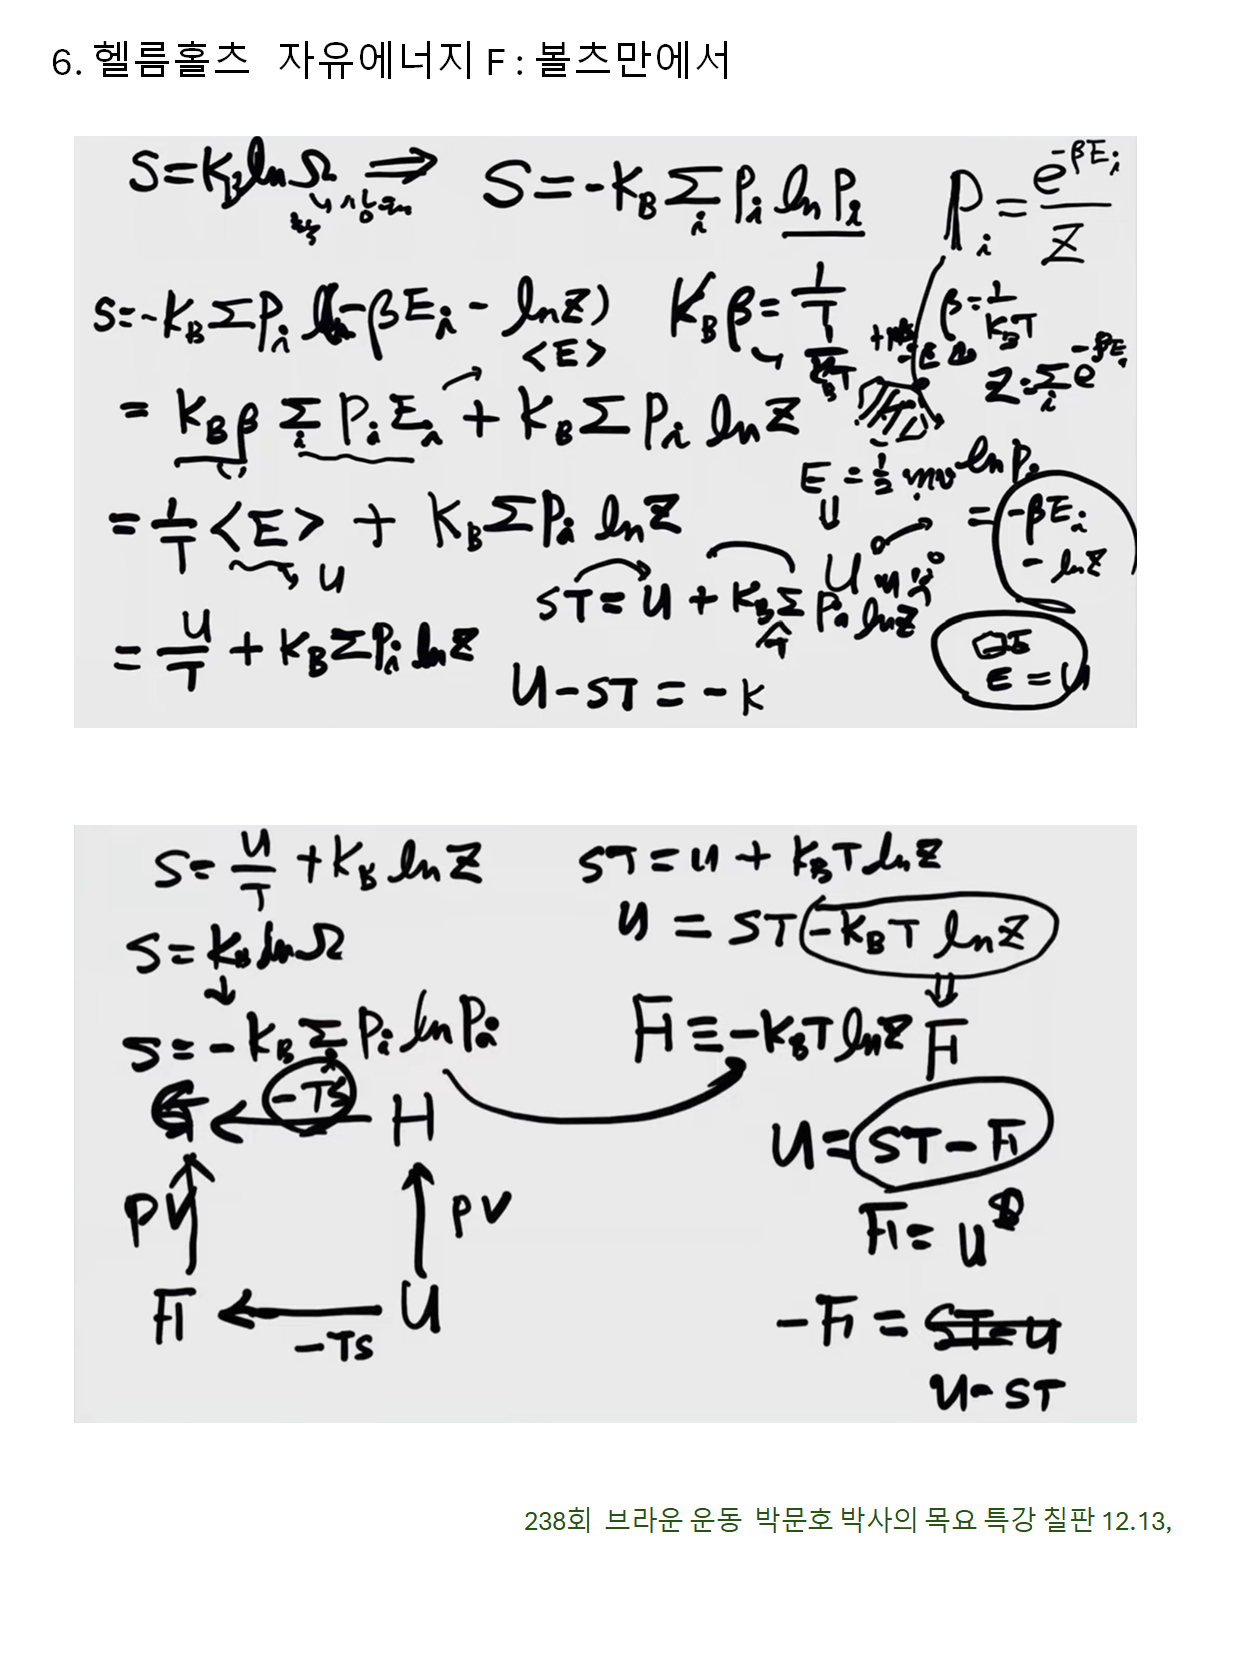 6. 헬름홀츠 자유에너지 F : 볼츠만에서
S = K_B ln Ω ⟹ S = -K_B Σ_i P_i ln P_i
P_i = e^{-βE_i} / Z
S = -K_B Σ P_i (-βE_i - ln Z)
K_B β = 1/T
β = 1/(K_B T)
<E>
Z = Σ_i e^{-βE_i}
= K_B β Σ_i P_i E_i + K_B Σ P_i ln Z
E = 1/2 mv
ln P_i
= -βE_i
- ln Z
= 1/T <E> + K_B Σ P_i ln Z
U
ST = U + K_B Σ P_i ln Z
T
U
= U/T + K_B Σ P_i ln Z
E = U
U - ST = - K
S = U/T + K_B ln Z
ST = U + K_B T ln Z
U = ST - K_B T ln Z
S = K_B ln Ω
↓
⇓
S = -K_B Σ_i P_i ln P_i
F ≡ -K_B T ln Z
F
G ← -TS H
U = ST - F
PV ↑ ↑ PV
F = U
F ← U
-TS
-F = ST - U
U - ST
238회 브라운 운동 박문호 박사의 목요 특강 칠판 12.13,